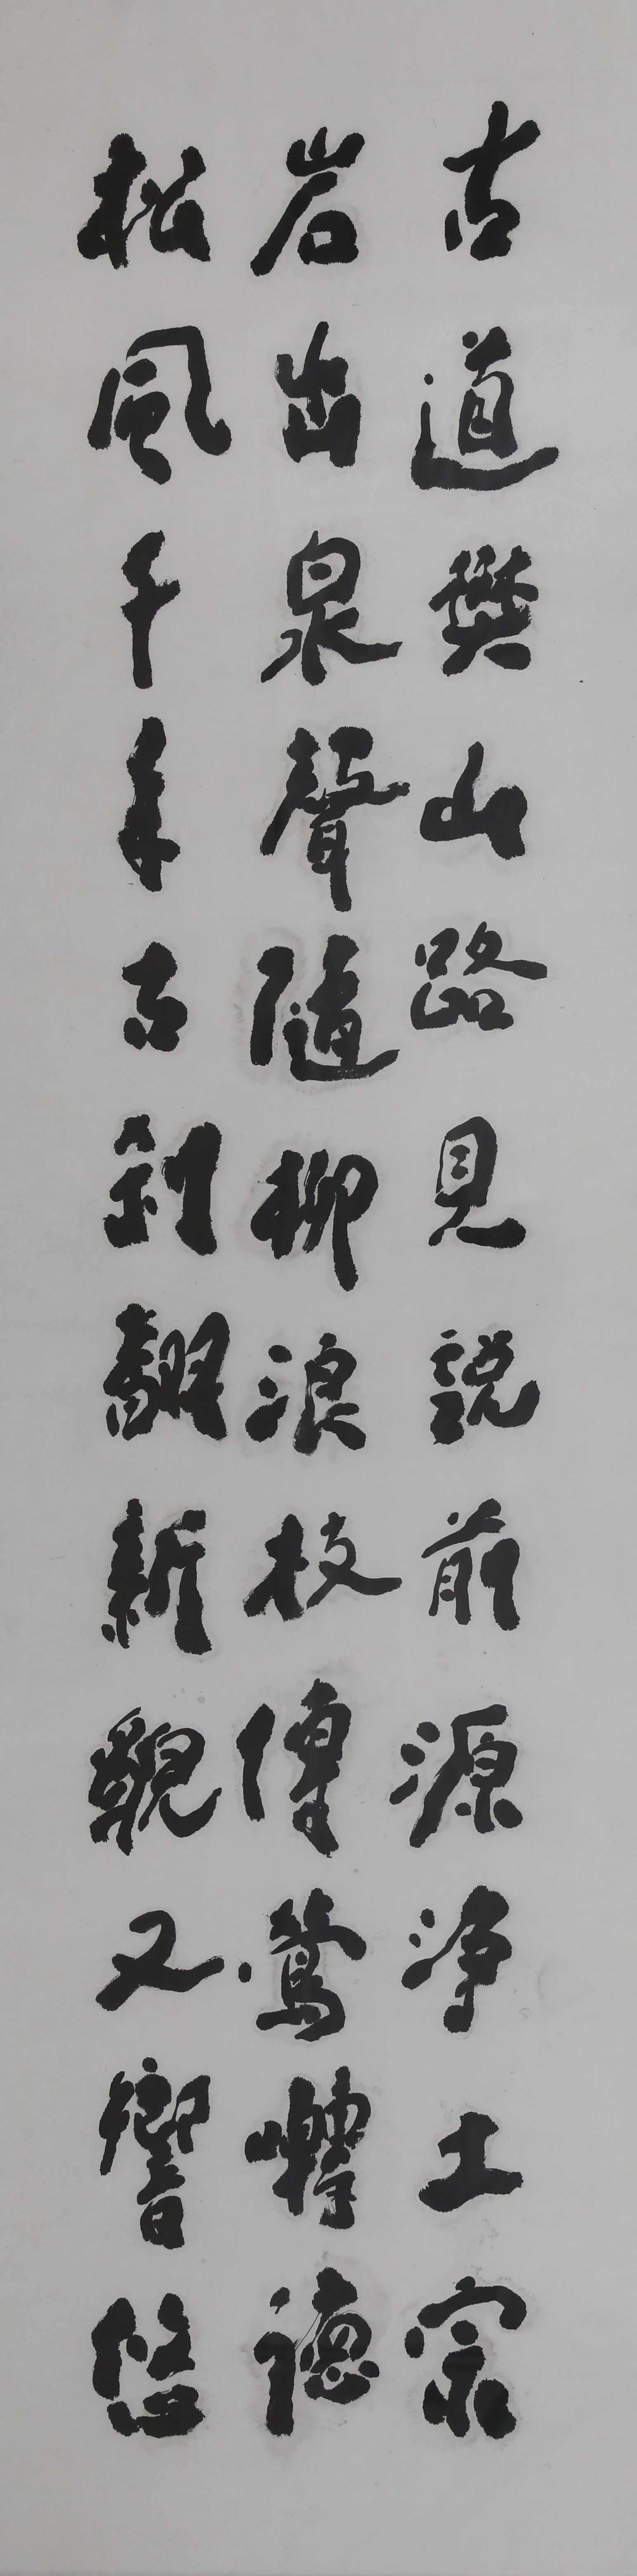 古道樊山路見説前源淨土宗
岩出泉聲隨柳浪枝傳鶯囀德
松風千年古刹翻新觀又響悠